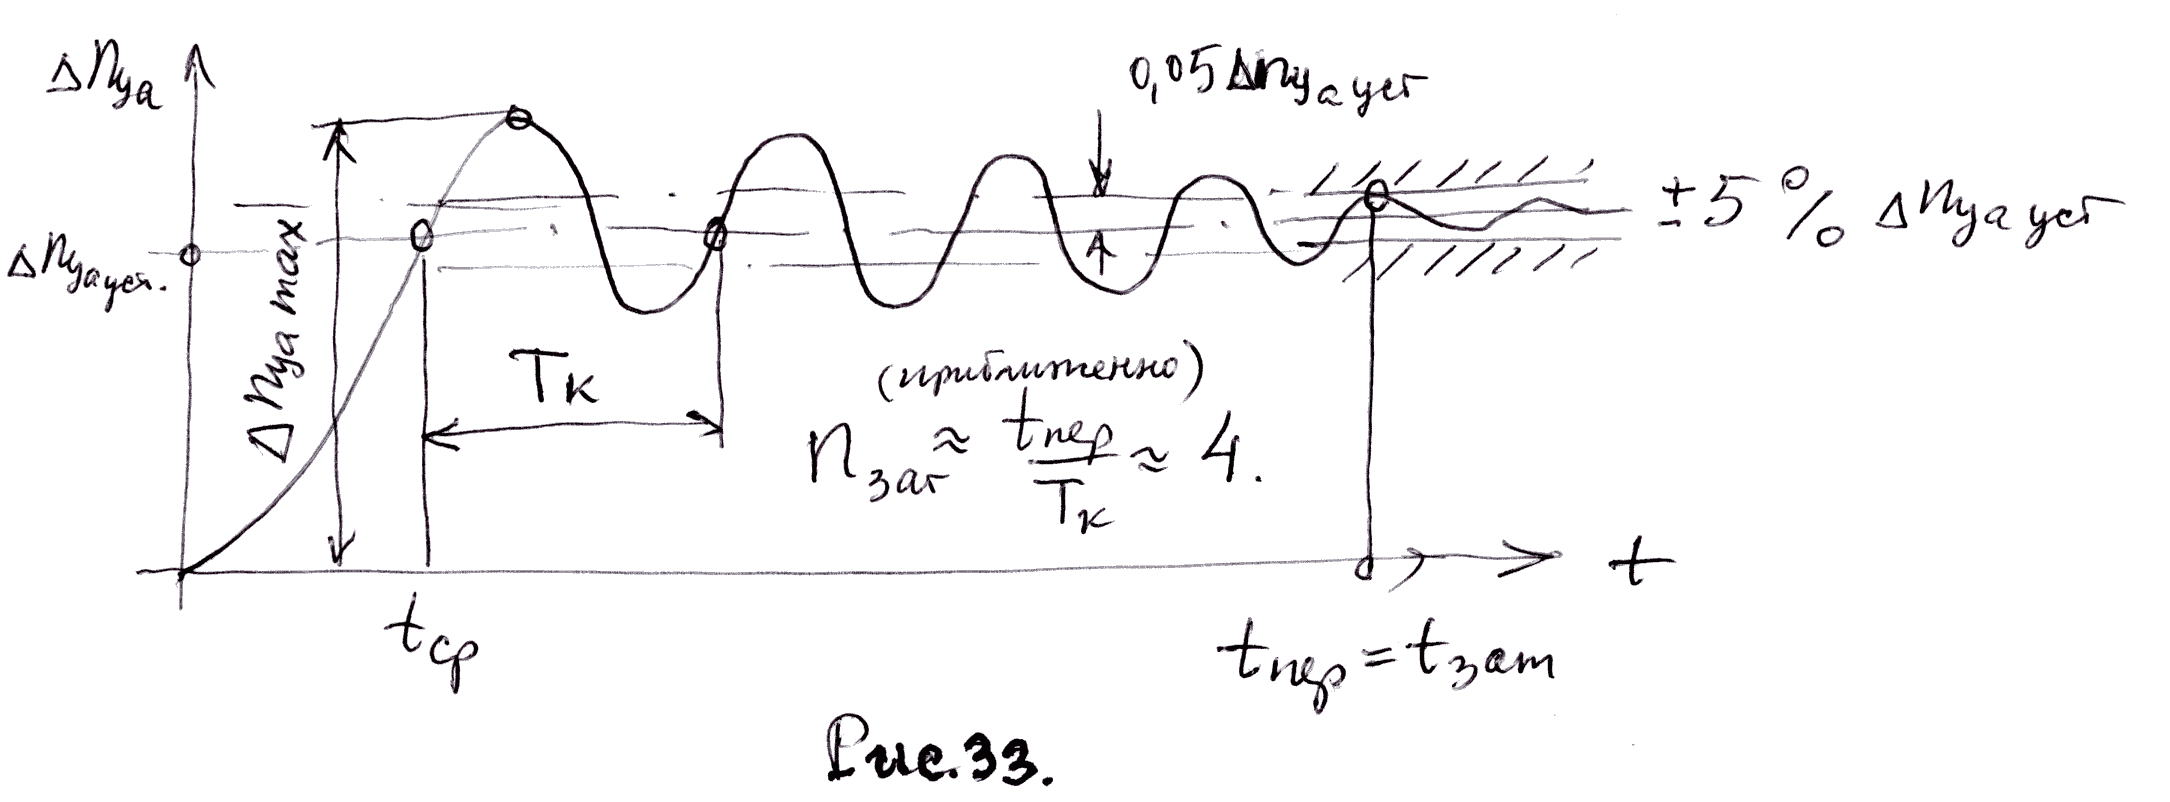 Δnya
0,05Δnya уст
±5% Δnya уст
Δnya уст.
Δnya max
Tк
(приближенно)
nзат ≈ tпер/Tк ≈ 4.
t
tср
tпер = tзат
Рис.33.